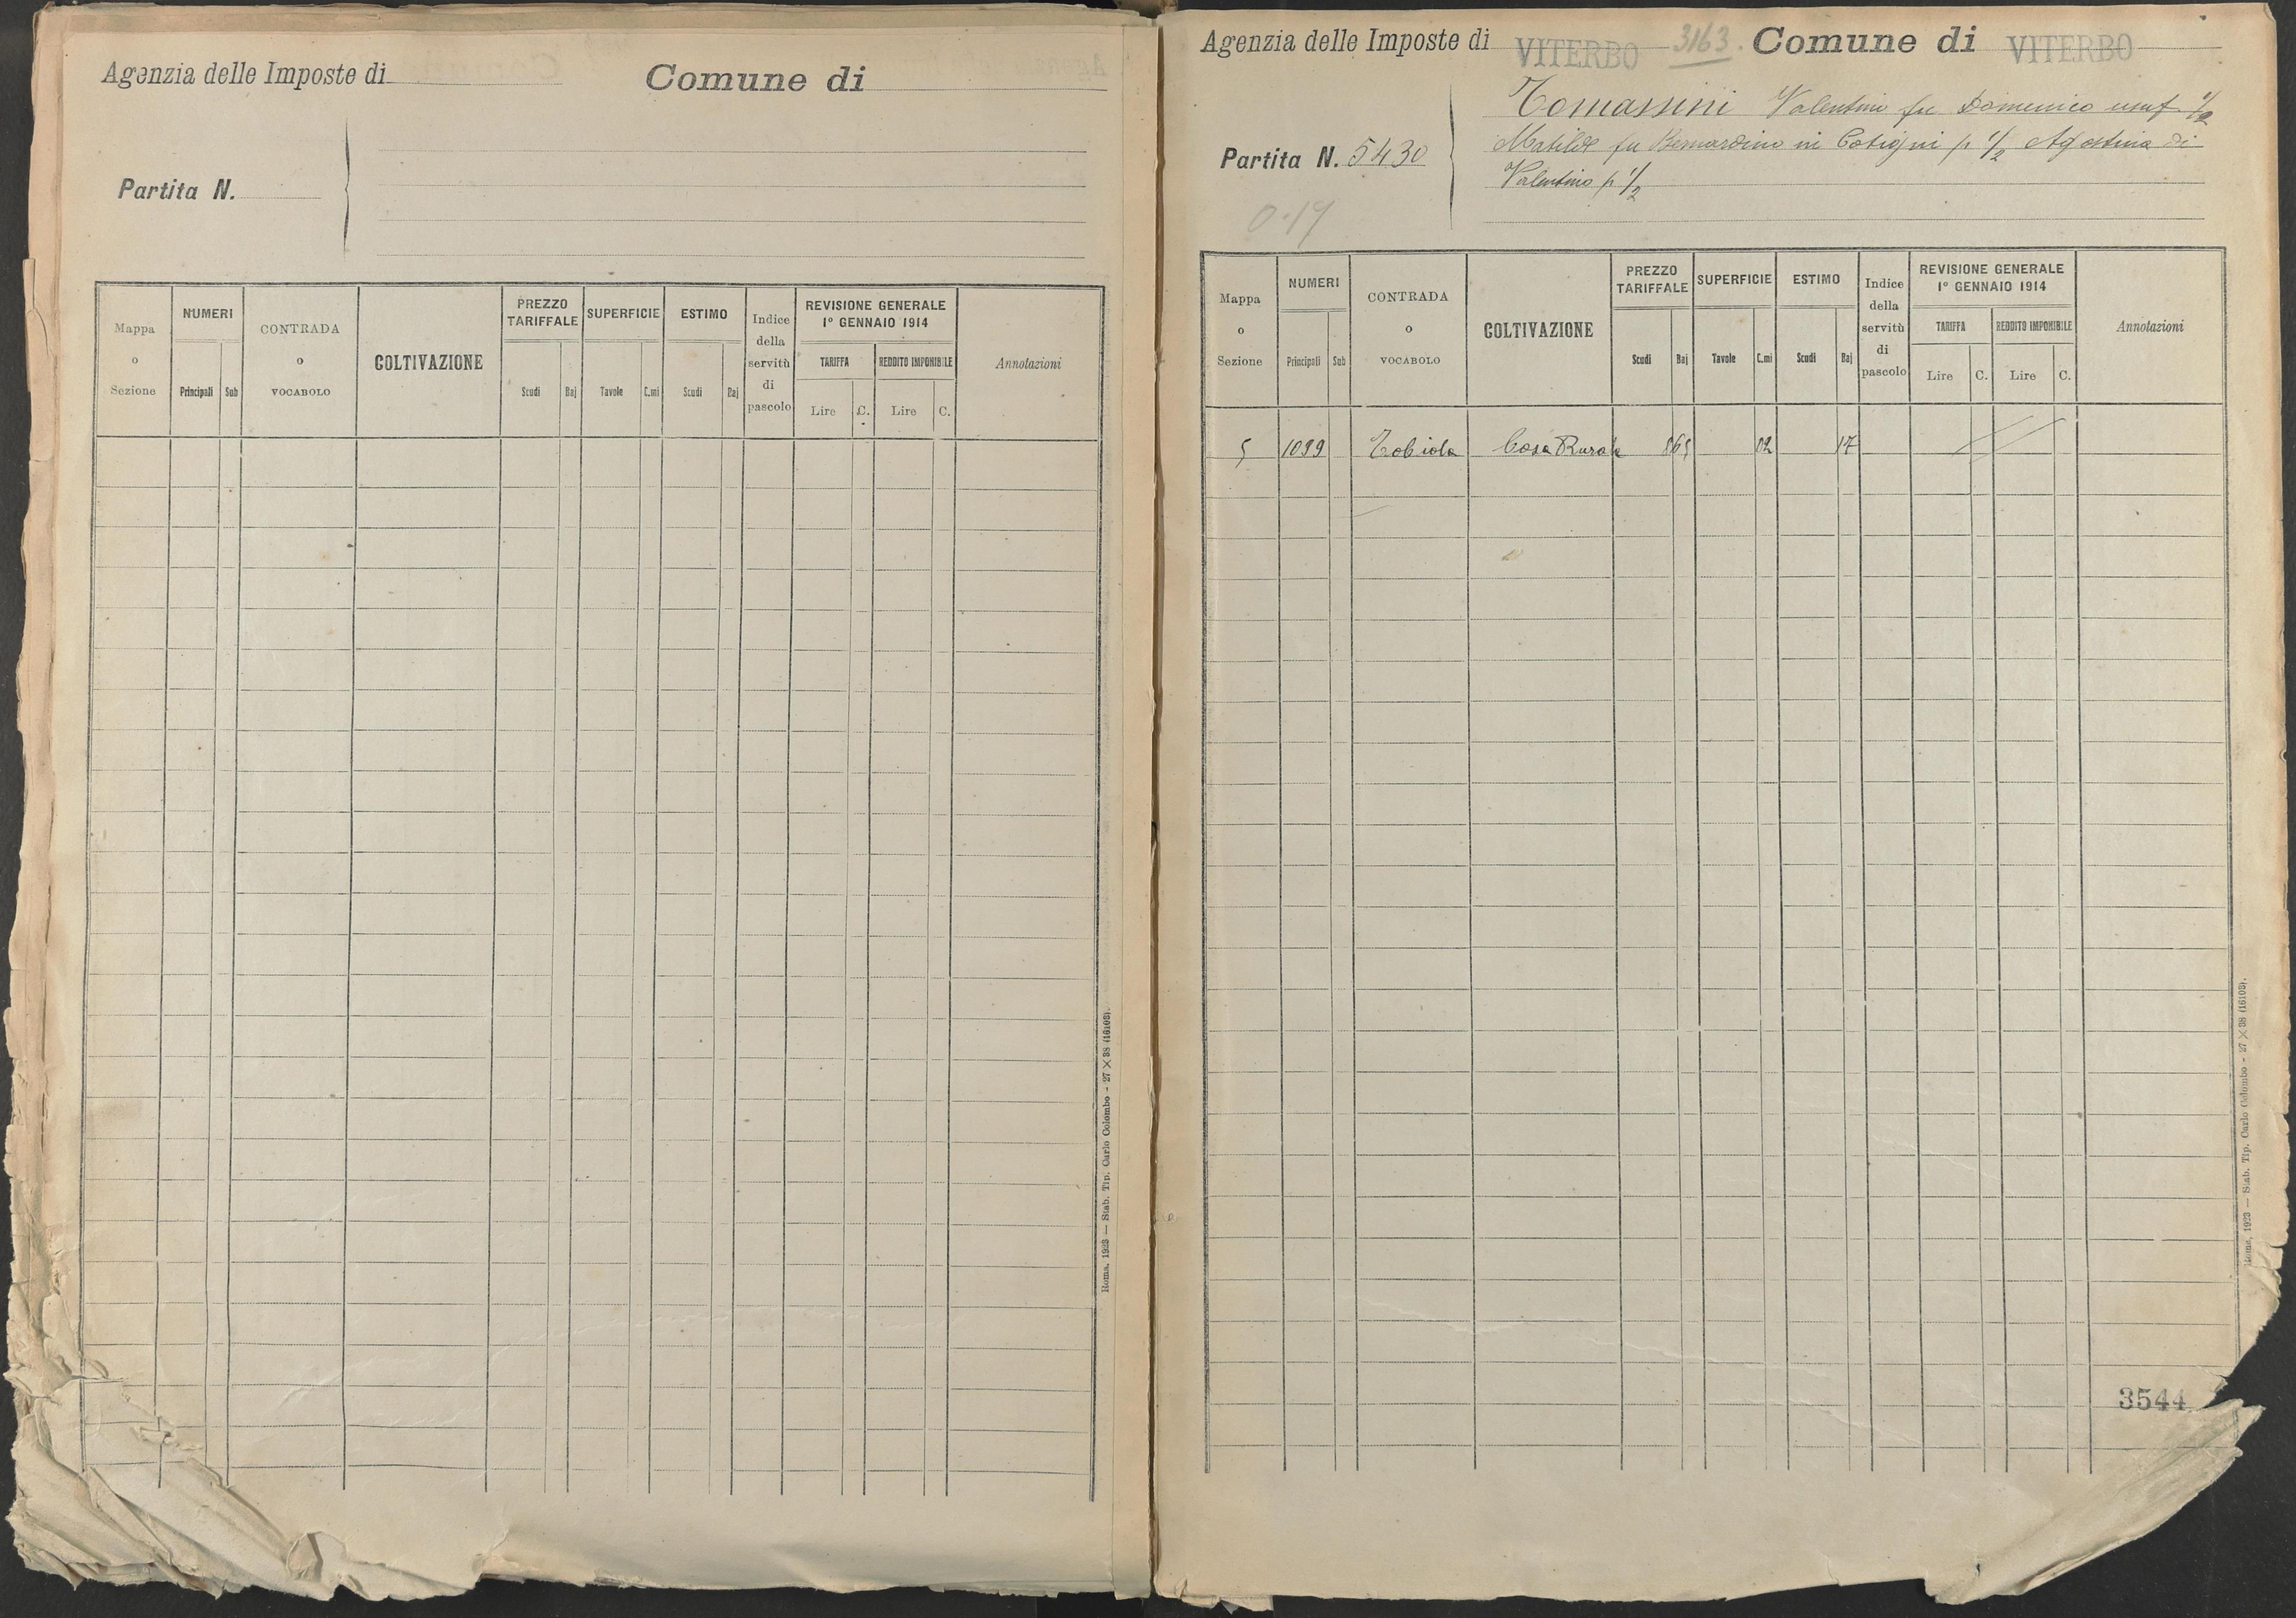 Agenzia delle Imposte di
Comune di
Partita N.
Mappa o Sezione
NUMERI
Principali
Sub
CONTRADA o VOCABOLO
COLTIVAZIONE
PREZZO TARIFFALE
Scudi
Baj
SUPERFICIE
Tavole
C.mi
ESTIMO
Scudi
Baj
Indice della servitù di pascolo
REVISIONE GENERALE
1° GENNAIO 1914
TARIFFA
REDDITO IMPONIBILE
Lire
C.
Lire
C.
Annotazioni
Roma, 1923 — Stab. Tip. Carlo Colombo - 27 × 38 (16103).
Agenzia delle Imposte di VITERBO 3163. Comune di VITERBO
Tomassini Valentino fu Domenico usuf. 1/2
Matilde fu Bernardino in p 1/2 Agostina di
Valentino p 1/2
Partita N. 5430
0.17
Mappa o Sezione
NUMERI
Principali
Sub
CONTRADA o VOCABOLO
COLTIVAZIONE
PREZZO TARIFFALE
Scudi
Baj
SUPERFICIE
Tavole
C.mi
ESTIMO
Scudi
Baj
Indice della servitù di pascolo
REVISIONE GENERALE
1° GENNAIO 1914
TARIFFA
REDDITO IMPONIBILE
Lire
C.
Lire
C.
Annotazioni
5 1099 Tobiola Casa Rurale 865 02 17
3544
Roma, 1923 — Stab. Tip. Carlo Colombo - 27 × 38 (16103).